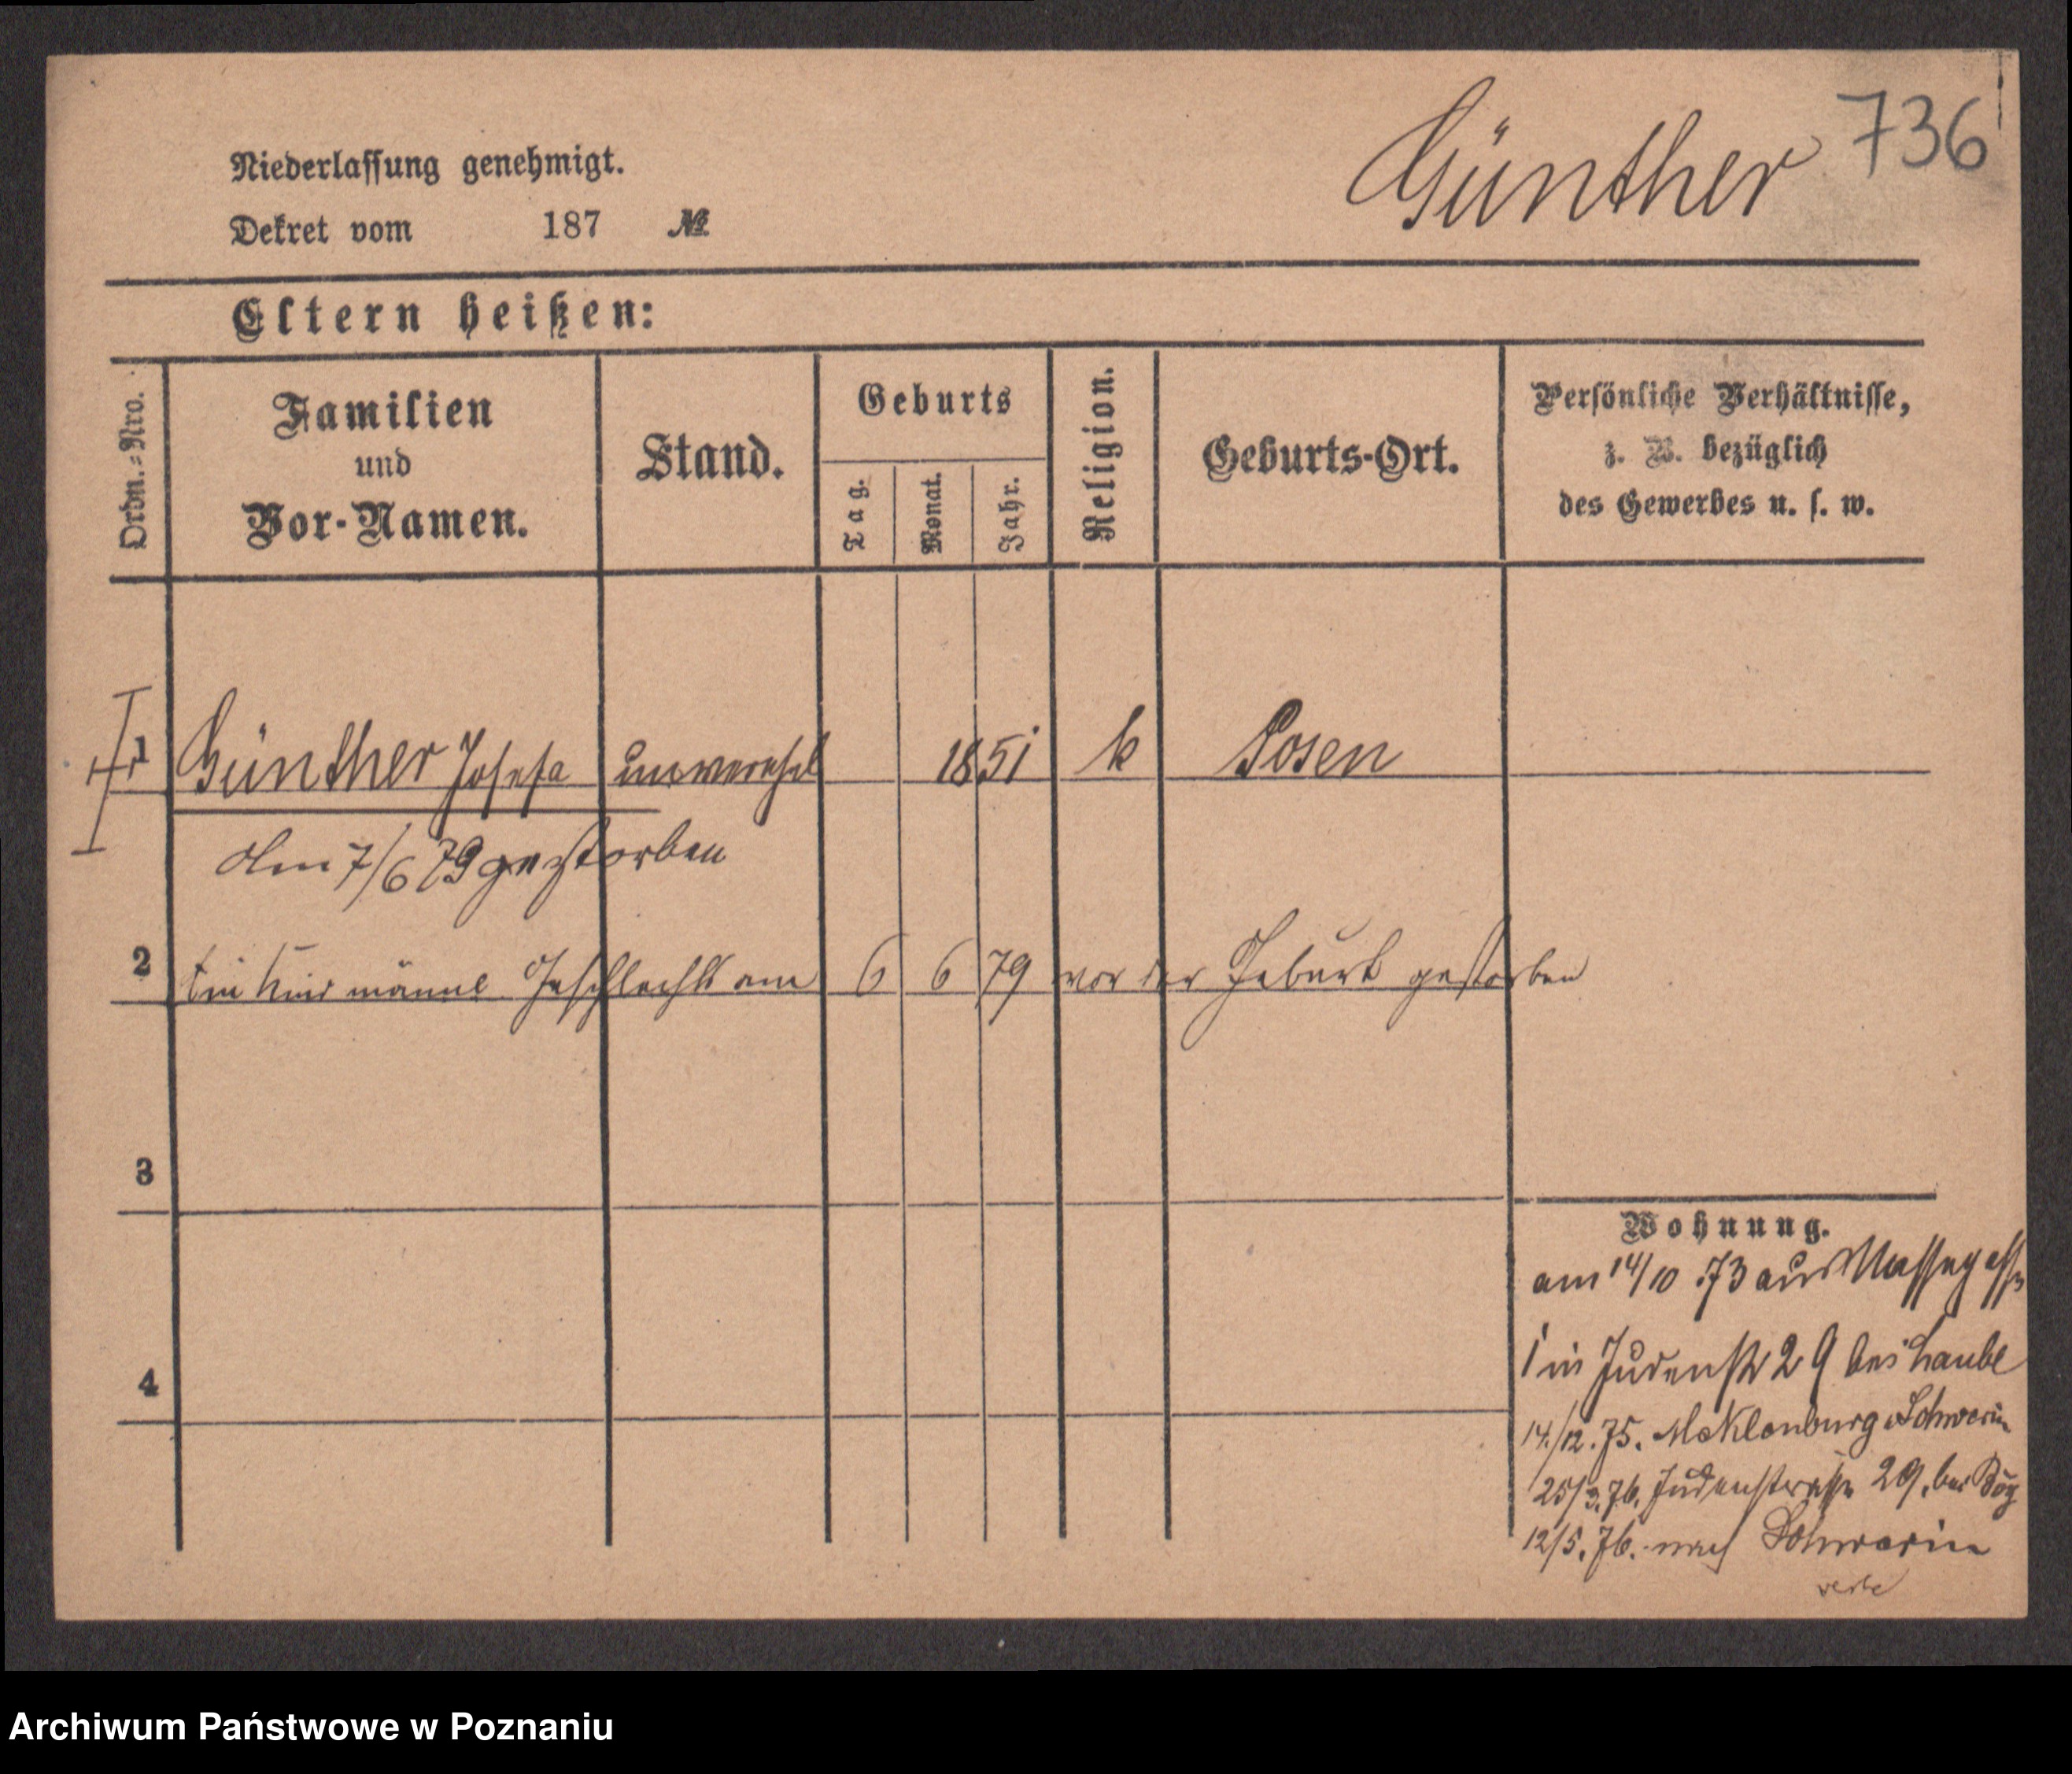 736
Günther
Niederlassung genehmigt.
Dekret vom 187 №
Eltern heißen:
Ordn.=Nro.
Familien
und
Vor-Namen.
Stand.
Geburts
Tag.
Monat.
Jahr.
Religion.
Geburts-Ort.
Persönliche Verhältnisse,
z. B. bezüglich
des Gewerbes u. s. w.
1 Günther Josefa unverehel 1851 k Posen
Am 7/6 79 gestorben
2 Ein Kind männl Geschlechts am 6 6 79 vor der Geburt gestorben
3
4
Wohnung.
am 14/10 73 aus
1 in Judenstr 29 bei Laube
14./12.75. Meklenburg Schwerin
25/3.76. Judenstrasse 29. bei
12/5.76. nach Schwerin
verte
Archiwum Państwowe w Poznaniu